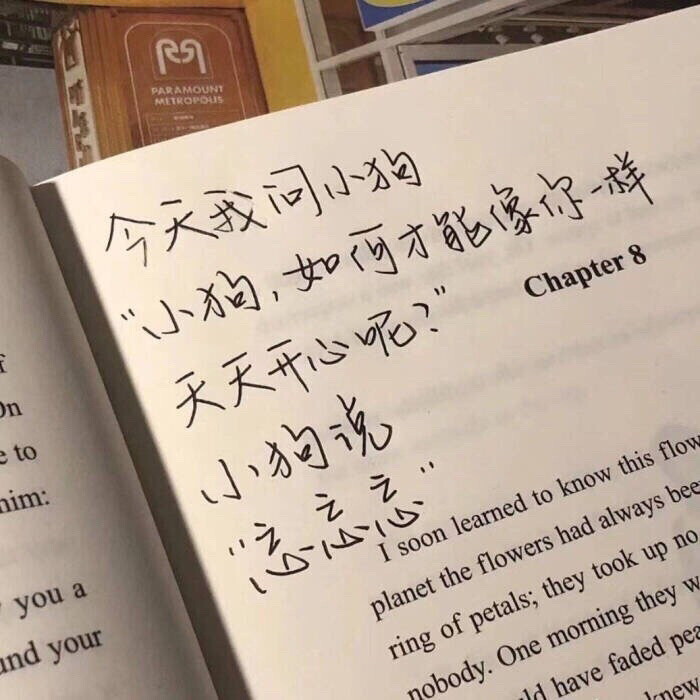 PARAMOUNT
METROPOLIS
今天我问小狗
"小狗,如何才能像你一样
天天开心呢?"
小狗说
"忘忘忘"
On
e to
him:
you a
und your
Chapter 8
I soon learned to know this flow
planet the flowers had always bee
ring of petals; they took up no
nobody. One morning they w
ld have faded pea
knew